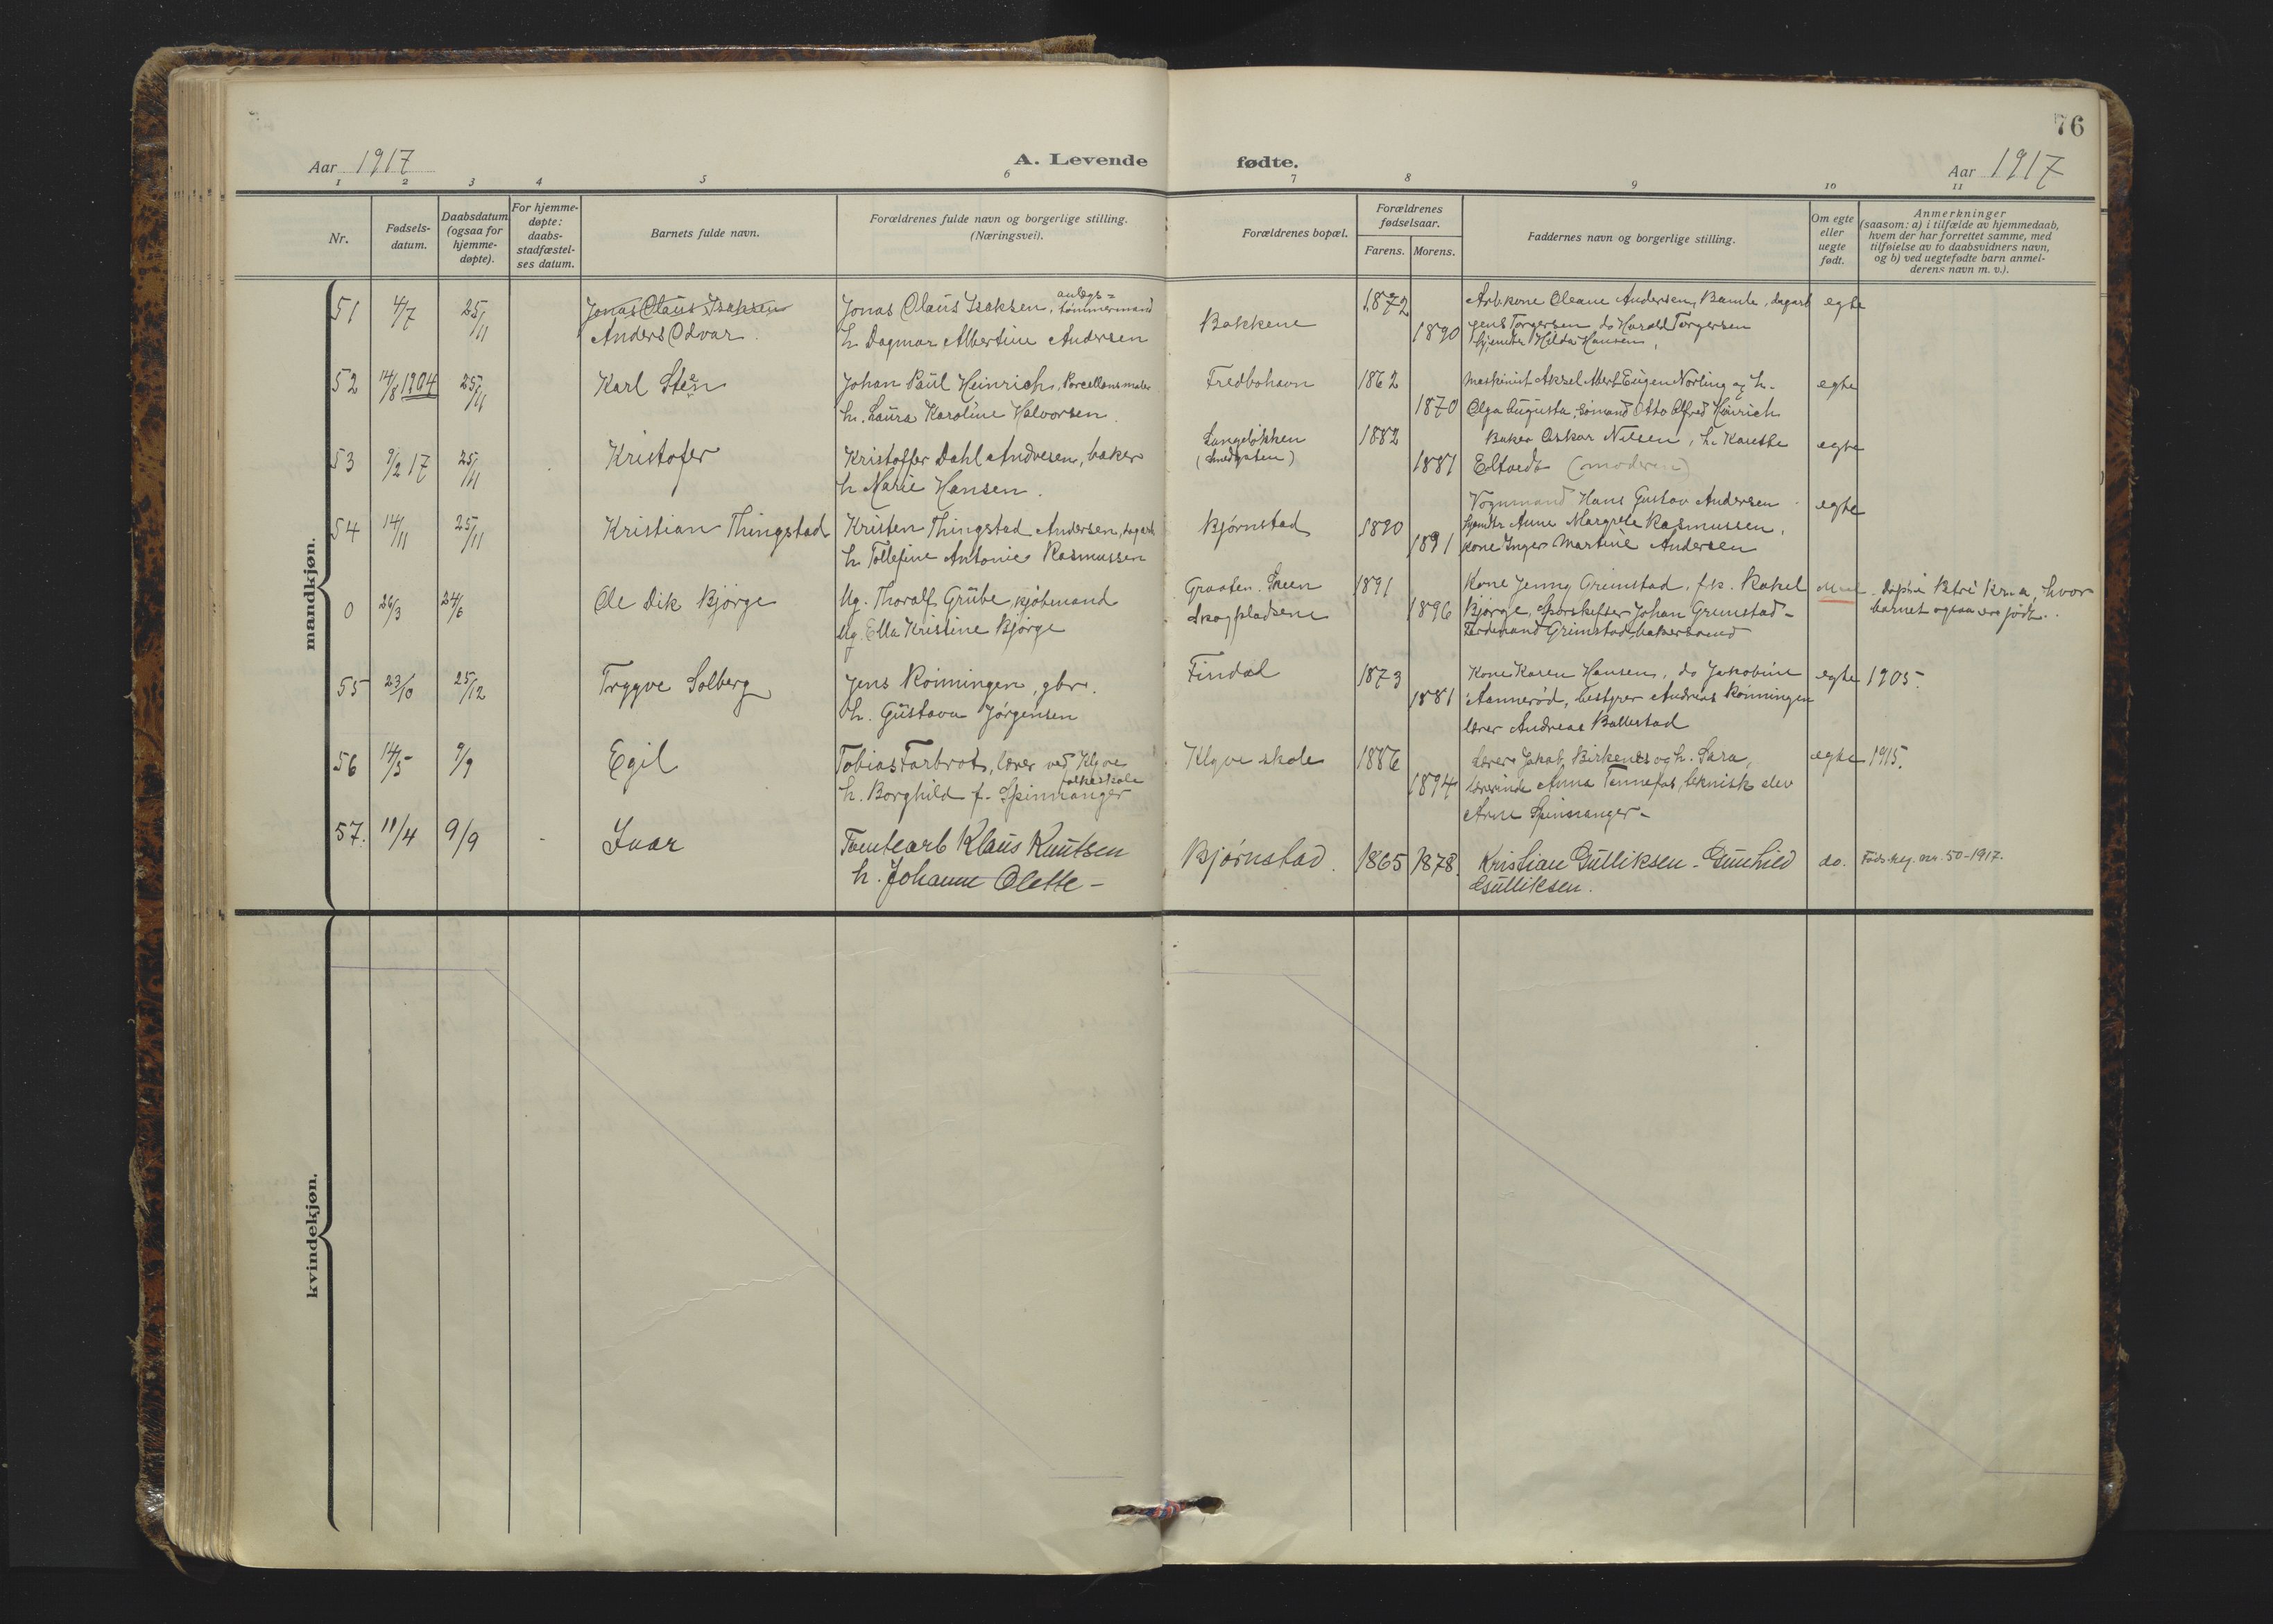 76
Aar 1917
A. Levende fødte.
Aar 1917
1 2 3 4 5 6 7 8 9 10 11
Nr.
Fødsels-
datum.
Daabsdatum
(ogsaa for
hjemme-
døpte).
For hjemme-
døpte:
daabs-
stadfæstel-
ses datum.
Barnets fulde navn.
Forældrenes fulde navn og borgerlige stilling.
(Næringsvei).
Forældrenes bopæl.
Forældrenes
fødselsaar.
Farens. Morens.
Faddernes navn og borgerlige stilling.
Om egte
eller
uegte
født.
Anmerkninger
(saasom: a) i tilfælde av hjemmedaab,
hvem der har forrettet samme, med
tilføielse av to daabsvidners navn,
og b) ved uegtefødte barn anmel-
derens navn m. v.).
mandkjøn.
51 4/7 25/11
Jonas Olaus Isaksen
Anders Odvar
Jonas Olaus Isaksen, anlegs=
tømmermand
h. Dagmar Albertine Andersen
Bakkene
1872
1890
Arb.kone Oleane Andersen, Bamle, dagarb
Jens Torgersen do Harald Torgersen
hjemdtr Hilda Hansen,
egte
52 14/8 1904 25/11
Karl Steen
Johan Paul Heinrich, Porcellansmaler
h. Laura Karoline Halvorsen.
Fredbohavn
1862
1870
Maskinist Aksel Albert Eugen Norling og h.
Olga Augusta, sømand Otto Alfred Heinrich
egte
53 9/2 17 25/11
Kristofer
Kristoffer Dahl Andresen, baker
h Marie Hansen.
Langeløkken
1882
1881
Baker Oskar Nilsen, h. Karethe
Eltvedt (moderen)
egte
54 14/11 25/11
Kristian Thingstad
Kristen Thingstad Andersen, dagarb
h. Tollefine Antonie Rasmussen
Bjørnstad
1890
1891
Vognmand Hans Gustav Andersen
hjemdtr Anne Margrete Rasmussen,
kone Inger Martine Andersen
egte
0 26/3 24/6
Ole Dik Bjørge
Ug. Thoralf Grube, kjøbmand
Ug. Ella Kristine Bjørge
Graaten. Skeen
1891
1896
Kone Jenny Grimstad, frk. Rakel
Bjørge, Johan Grimstad-
Ferdinand Grimstad, bakersvend
Døpt i Petri Kr.a, hvor
barnet ogsaa er født.
55 23/10 25/12
Trygve Solberg
Jens Rønningen, gbr.
h. Gustava Jørgensen
Findal
1873
1881
Kone Karen Hansen, do Jakobine
Aannerød, bestyrer Andreas Rønningen
lærer Andreas Ballestad
egte
1905.
56 14/5 9/9
Egil
Tobias Farbrot, lærer ved Klyve
folkeskole
h. Borghild f. Spinnanger
Klyve skole
1886
1894
Lærer Jakob Birkenes og h. Sara,
lærerinde Anna Tennefos, teknisk elev
Arne Spinnanger-
egte
1915.
57. 11/4 9/9 -
Ivar
Tomtearb Klaus Knutsen
h. Johanne Olette -
Bjørnstad.
1865 1878.
Kristian Gulliksen - Gunhild
Gulliksen.
do.
Føds.reg. nr. 50-1917.
kvindekjøn.